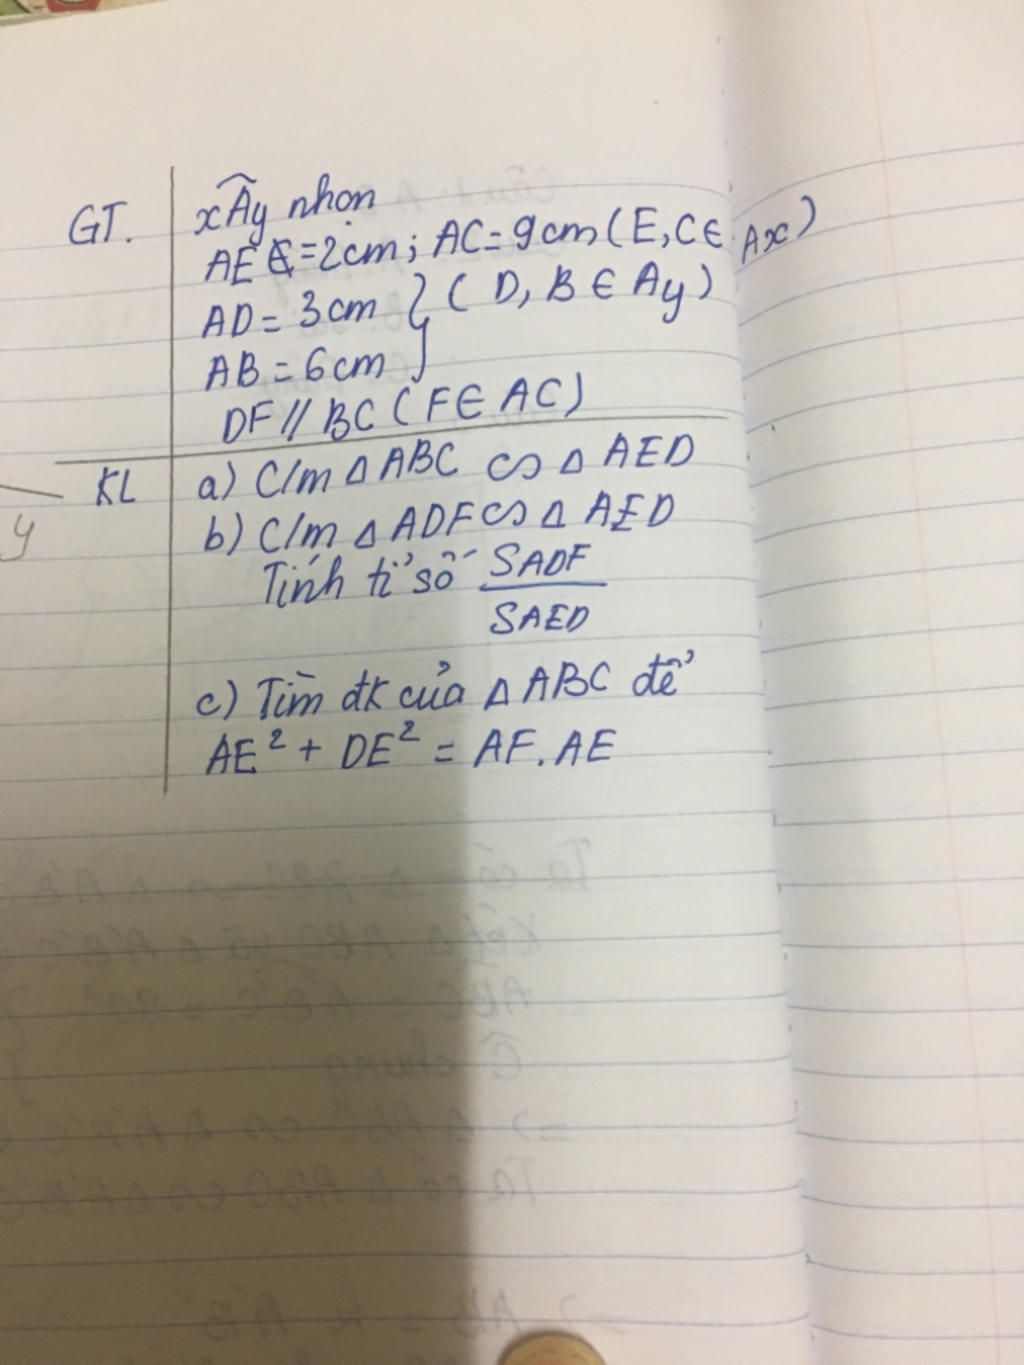 GT. xÂy nhọn
AE = 2cm; AC = 9cm (E, C ∈ Ax)
AD = 3cm } (D, B ∈ Ay)
AB = 6cm
DF // BC (F ∈ AC)
KL a) C/m Δ ABC ∽ Δ AED
y b) C/m Δ ADF ∽ Δ AED
Tính tỉ số SADF
SAED
c) Tìm đk của Δ ABC để
AE² + DE² = AF. AE